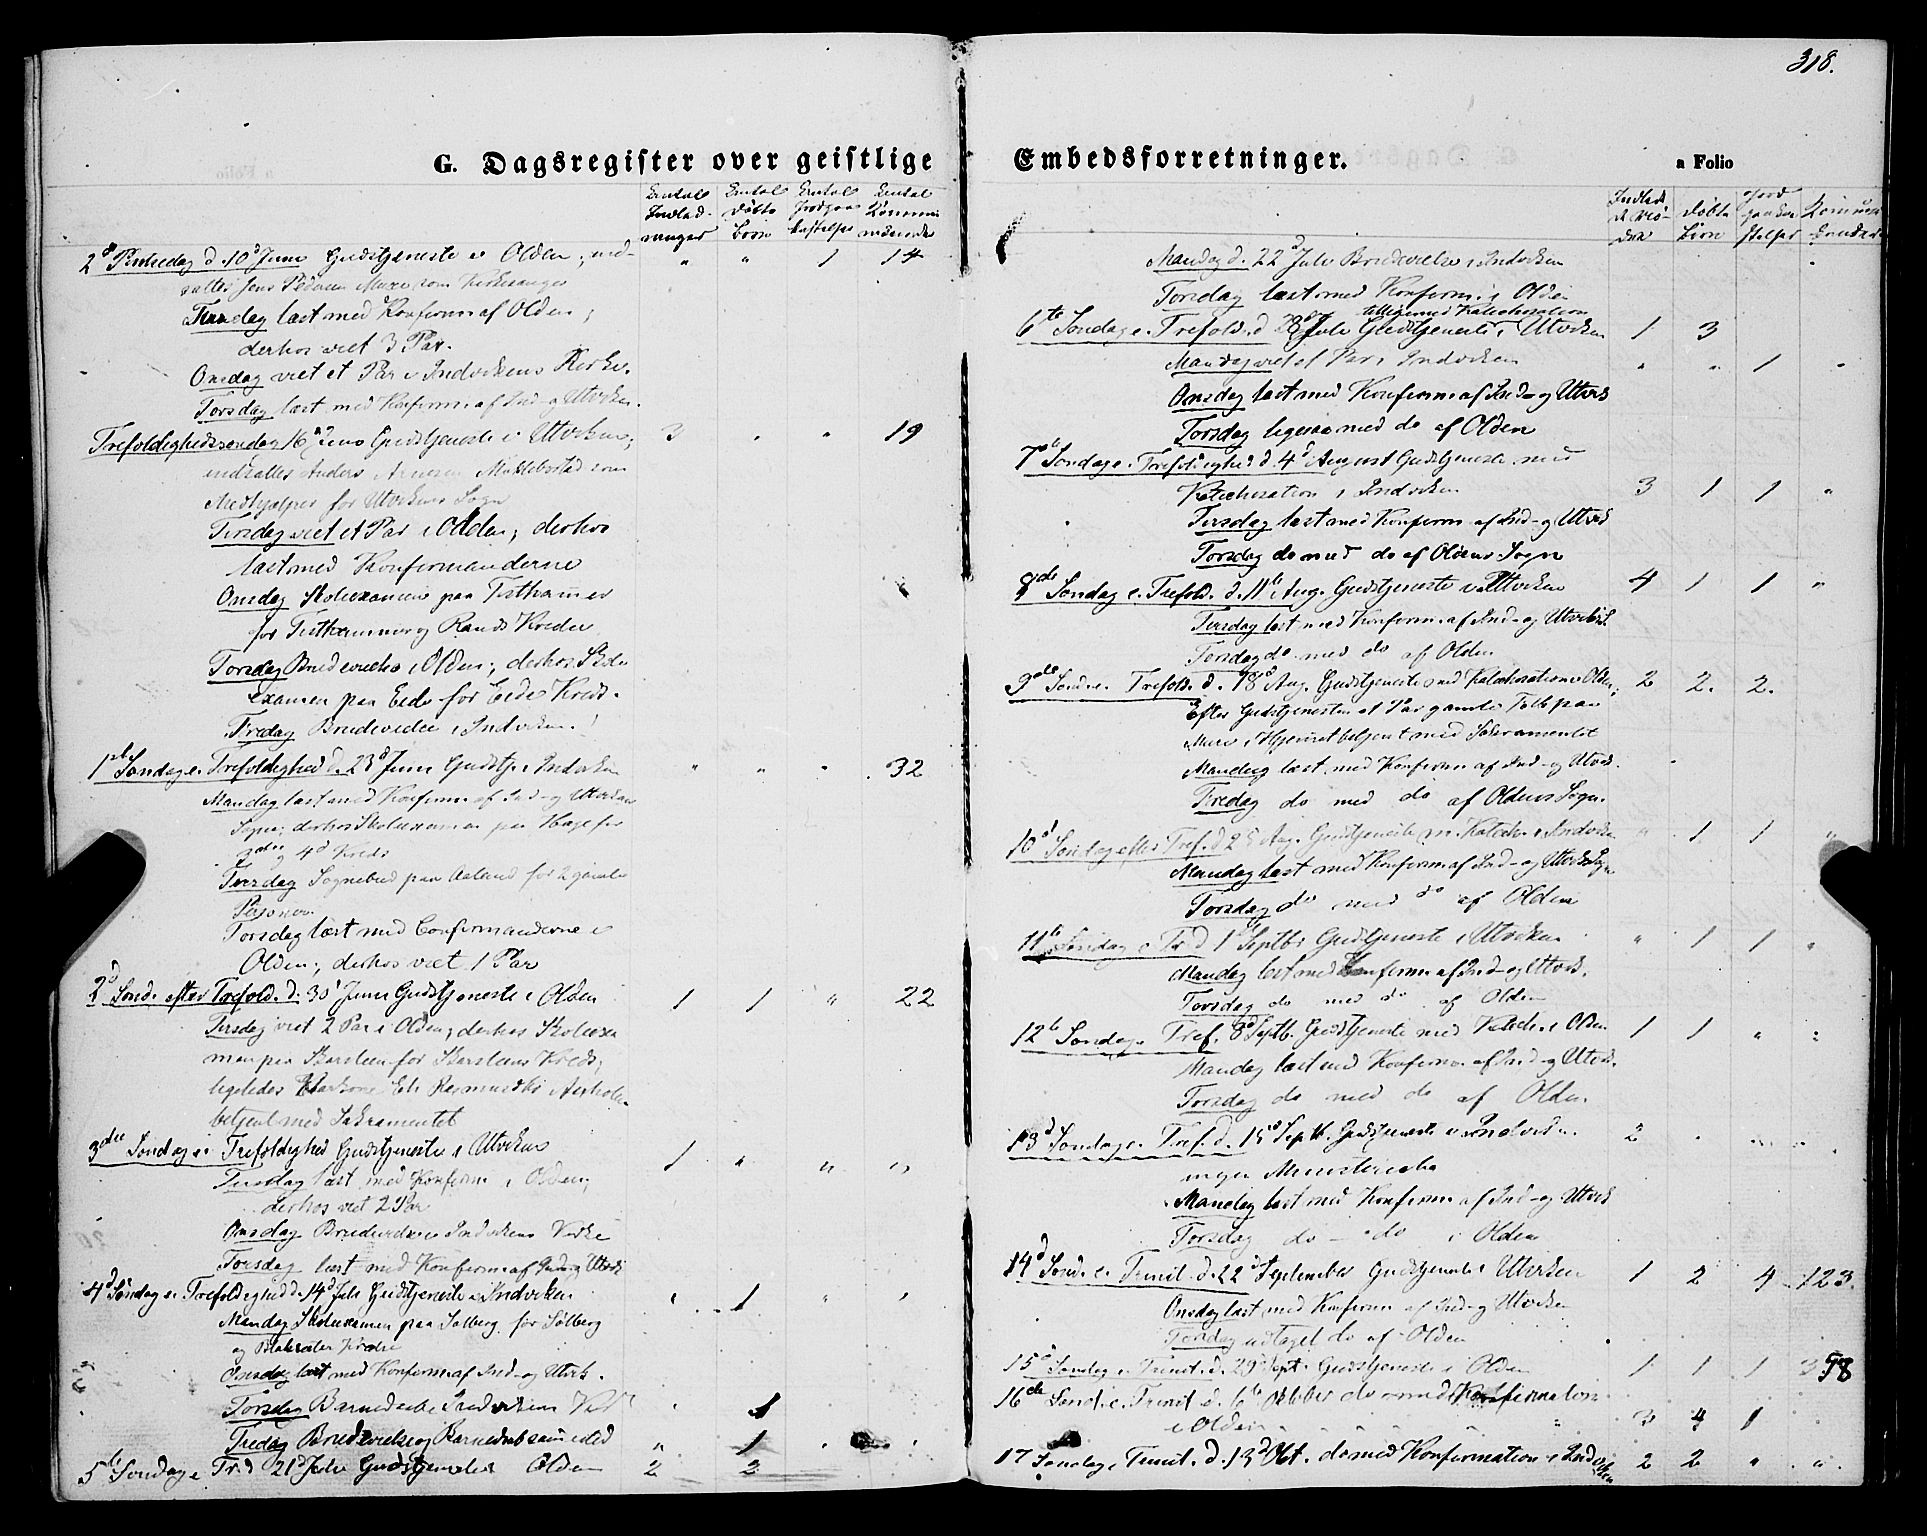 318.
G. Dagsregister over geistlige Embedsforretninger.
a Folio
Antal Indled- ninger
Antal døbte Børn
Antal
Antal
døbte Børn
2d Pintsedag d. 10d Juni Gudstjeneste i Olden; ind- " " 1 14
sattes Jens Pedersen Muri som Kirkesanger
Tirsdag læst med Konfirm. af Olden;
derhos viet 3 Par.
Onsdag viet et Par i Indvikens Kirke.
Torsdag læst med Konfirm. af Ind- og Utviken.
Trefoldighedssøndag 16d Juni Gudstjeneste i Utviken; 3 " " 19
indsattes Anders Arnesen som
Medhjælper for Utvikens Sogn
Tirsdag viet et Par i Olden; derhos
læst med Konfirmanderne
Onsdag Skoleexamen paa Tisthammer
for Tisthammer og Rands Kredse
Torsdag Brudevielse i Olden; derhos Skole
examen paa Eide for Eide Kreds.
Fredag Brudevielse i Indviken.
1ste Søndag e. Trefoldighed d. 23d Juni Gudstj. i Indviken " " " 32
Mandag læst med Konfirm. af Ind- og Utvikens
Sogne; derhos Skoleexamen paa Hage for
3die og 4d Kreds
Tirsdag Sognebud paa Aaland for 2 gamle
Personer.
Torsdag læst med Confirmanderne i
Olden; derhos viet 1 Par
2d Sønd. efter Trefold. d. 30d Juni Gudstjeneste i Olden 1 1 " 22
Tirsdag viet 2 Par i Olden; derhos Skoleexa
men paa Skarsteen for Skarsteens Kreds;
ligeledes
betjent med Sakramentet
3die Søndag e. Trefoldighed Gudstjeneste i Utviken 1 " " "
Tirsdag læst med Konfirm. i Olden;
derhos viet 2 Par
Onsdag Brudevielse i Indvikens Kirke
Torsdag læst med Konfirm. af Ind- og Utvik
4d Søndag e. Trefoldighed d. 14d Juli Gudstjeneste i Indviken " 1 " "
Mandag Skoleexamen paa Solberg for Solberg
og Kredse
Onsdag læst med Konfirm. af Ind- og Utvik.
Torsdag Barnedaab i Indvikens Kirke " 1
Fredag Brudevielse og Barnedaab samested " 1
5te Søndag e. Tr. d. 21d Juli Gudstjeneste i Olden 2 2
Mandag d. 22d Juli Brudevielse i Indviken
Torsdag læst med Konfirm. i Olden
tilligemed Katechisation
6te Søndag e. Trefold. d. 28d Juli Gudstjeneste i Utviken 1 3
Mandag viet et Par i Indviken " " 1 "
Onsdag læst med Konfirm. af Ind- og Utvik
Torsdag ligesaa med do af Olden
7de Søndag e. Trefoldighed d. 4d August Gudstjeneste med
Katechisation i Indviken 3 1 1 "
Tirsdag læst med Konfirm. af Ind- og Utvik
Torsdag do med do af Oldens Sogn
8de Søndag e. Trefold. d. 11te Aug. Gudstjeneste i Utviken 4 1 1 "
Tirsdag læst med Konfirm. af Ind- og Utvik S.
Torsdag do med do af Olden
9de Sønd. e. Trefold. d. 18d Aug. Gudstjeneste med Katechisation i Olden; 2 2. 2.
Efter Gudstjenesten et Par gamle Folk paa
Muri i Hjemmet betjent med Sakramentet
Mandag læst med Konfirm. af Ind- og Utvik.
Fredag do med do af Oldens Sogn.
10d Søndag efter Tref. d. 25 Aug. Gudstjeneste m. Katech. i Indviken " 1 1 "
Mandag læst med Konfirm. af Ind- og Utviks Sogn
Torsdag do med do af Olden
11te Søndag e. Tr. d. 1d Septbr Gudstjeneste i Utviken " 1 1 "
Mandag læst med Konfirm. af Ind- og Utvik.
Torsdag do med do af Olden
12te Søndag e. Tref. 8d Septbr. Gudstjeneste med Katech. i Olden 1 1 " "
Mandag læst med Konfirm. af Ind- og Utvik.
Torsdag do med do af Olden.
13d Søndag e. Tref. d. 15d Septb. Gudstjeneste i Indviken. 2 " " "
ingen
Mandag læst med Konfirm. af Ind- og Utvik
Torsdag do - do i Olden
14d Sønd. e. Trinit. d. 22d September Gudstjeneste i Utviken 1 2 4 123.
Onsdag læst med Konfirm. af Ind- og Utviken
Torsdag do af Olden
15d Søndag e. Trinit. d. 29d Sept. Gudstjeneste i Olden 1 1 1 98
16de Sønd. e. Trinit. d. 6te Oktober do med Konfirmation
i Olden 3 4 1
17 Søndag e. Trinit. d. 13d Okt. do med Konfirmation i Indviken 2 2 " "